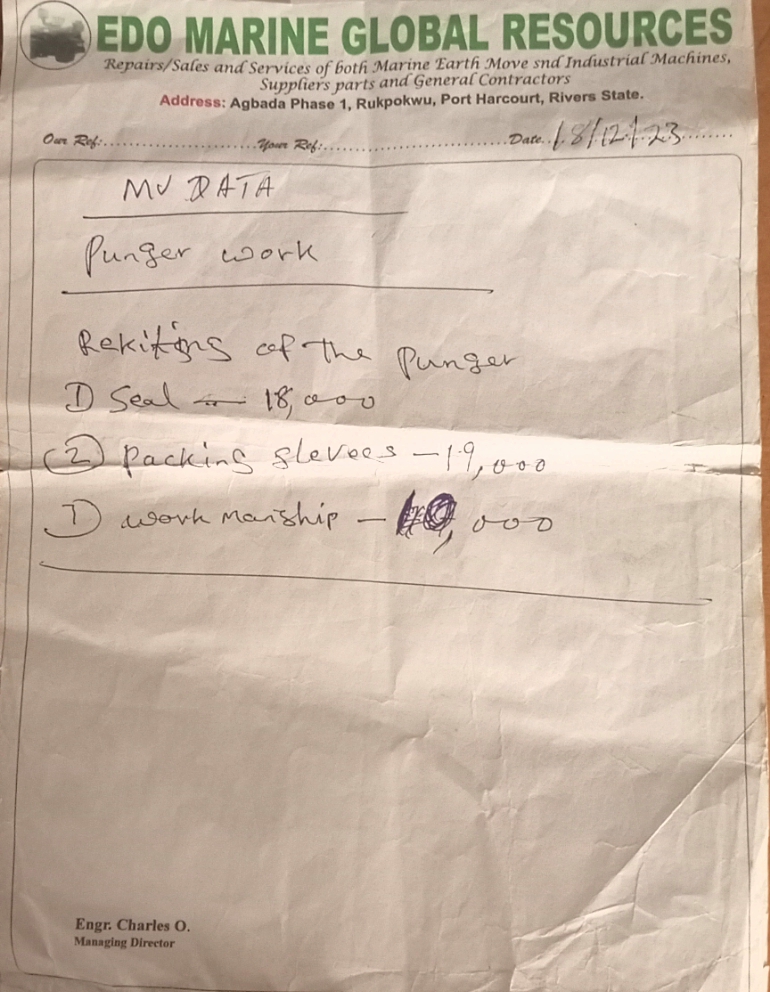 EDO MARINE GLOBAL RESOURCES
Repairs/Sales and Services of both Marine Earth Move snd Industrial Machines,
Suppliers parts and General Contractors
Address: Agbada Phase 1, Rukpokwu, Port Harcourt, Rivers State.
Our Ref:..............................Your Ref:....................................Date..18/12/23........
MV DATA
Punger work
Rekitings of the Punger
1) Seal — 18,000
(2) packing slevees — 19,000
1) work manship — ,000
Engr. Charles O.
Managing Director